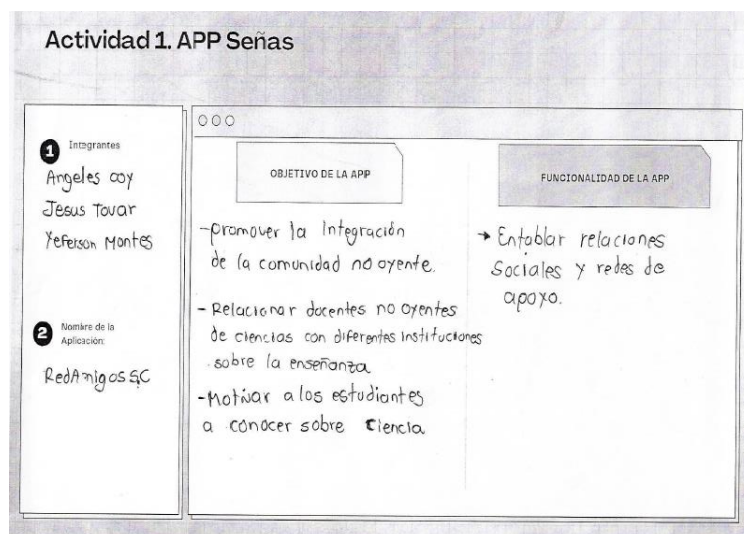 Actividad 1. APP Señas
1 Integrantes
Angeles coy
Jesus Tovar
Yeferson Montes
2 Nombre de la
Aplicación:
RedAmigos SC
OBJETIVO DE LA APP
-promover la Integración
de la comunidad no oyente.
- Relacionar docentes no oyentes
de ciencias con diferentes instituciones
sobre la enseñanza
-Motivar a los estudiantes
a conocer sobre Ciencia
FUNCIONALIDAD DE LA APP
→ Entablar relaciones
Sociales y redes de
apoyo.